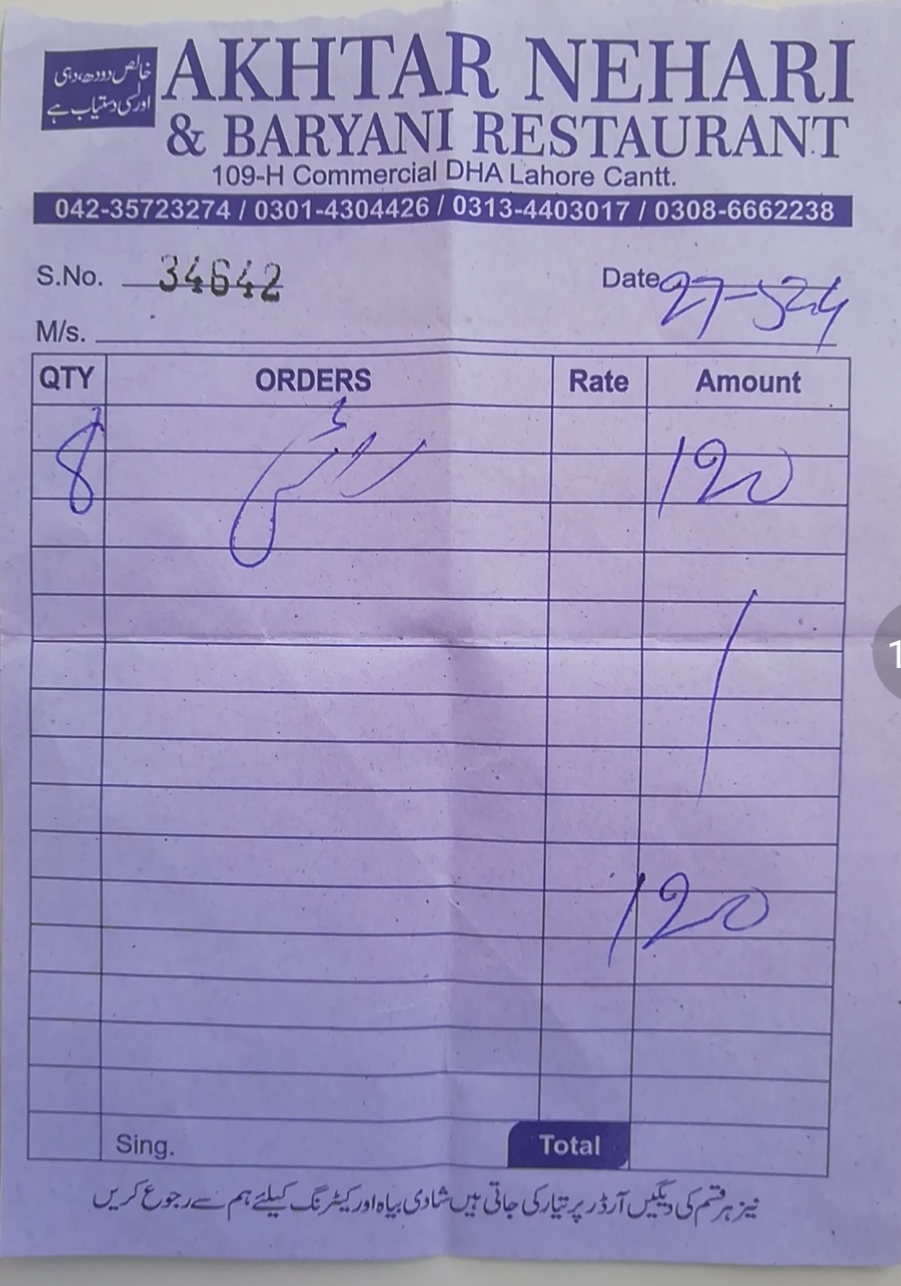 خالص دودھ، دہی
اور لسی دستیاب ہے
AKHTAR NEHARI
& BARYANI RESTAURANT
109-H Commercial DHA Lahore Cantt.
042-35723274 / 0301-4304426 / 0313-4403017 / 0308-6662238
S.No. 34642 Date 27-524
M/s.
QTY ORDERS Rate Amount
8 120
120
Sing. Total
نیز ہر قسم کی دیگیں آرڈر پر تیار کی جاتی ہیں شادی بیاہ اور کیٹرنگ کیلئے ہم سے رجوع کریں